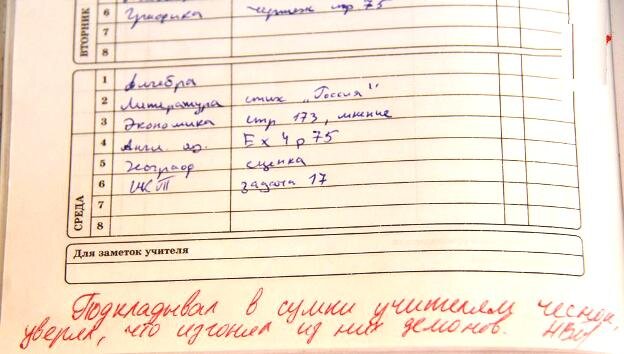 ВТОРНИК
6 Графика чертеж стр 75
7
8
СРЕДА
1 Алгебра
2 Литература стих „Россия"
3 Экономика стр 173, мнение
4 Англ. яз. Ex 4 p 75
5 Географ сценка
6 ИКТ задача 17
7
8
Для заметок учителя
Подкладывал в сумки учителям чеснок,
уверял, что изгонял из них демонов.